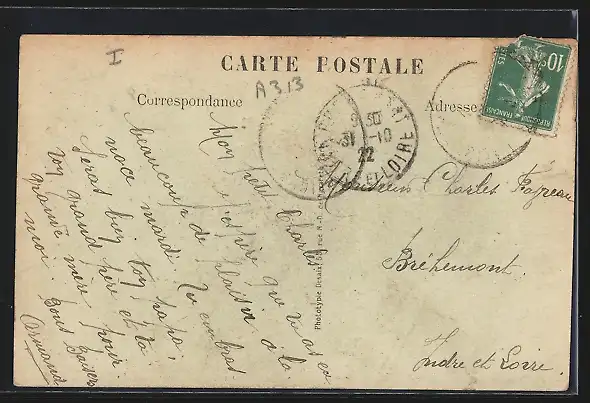 I
CARTE POSTALE
A313
Correspondance
Adresse
10c
REPUBLIQUE FRANÇAISE
POSTES
30
31-10
22
ET LOIRE
Mon petit Charles
J'espère que tu as eu
beaucoup de plaisir à la
noce mardi. Tu embras-
seras bien ton papa,
ton grand père et ta
grand mère pour
moi
Bons baisers
Armand
Monsieur Charles
Bréhemont.
Indre et Loire.
Phototypie Desaix